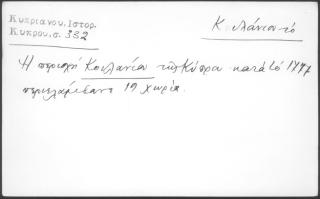 Κυπριανού, Ιστορ.
Κύπρου, σ. 382
Κοιλάνιον τό
Ἡ περιοχή Κοιλανίου τῆς Κύπρου κατά τό 1777
περιελάμβανε 19 χωρία.